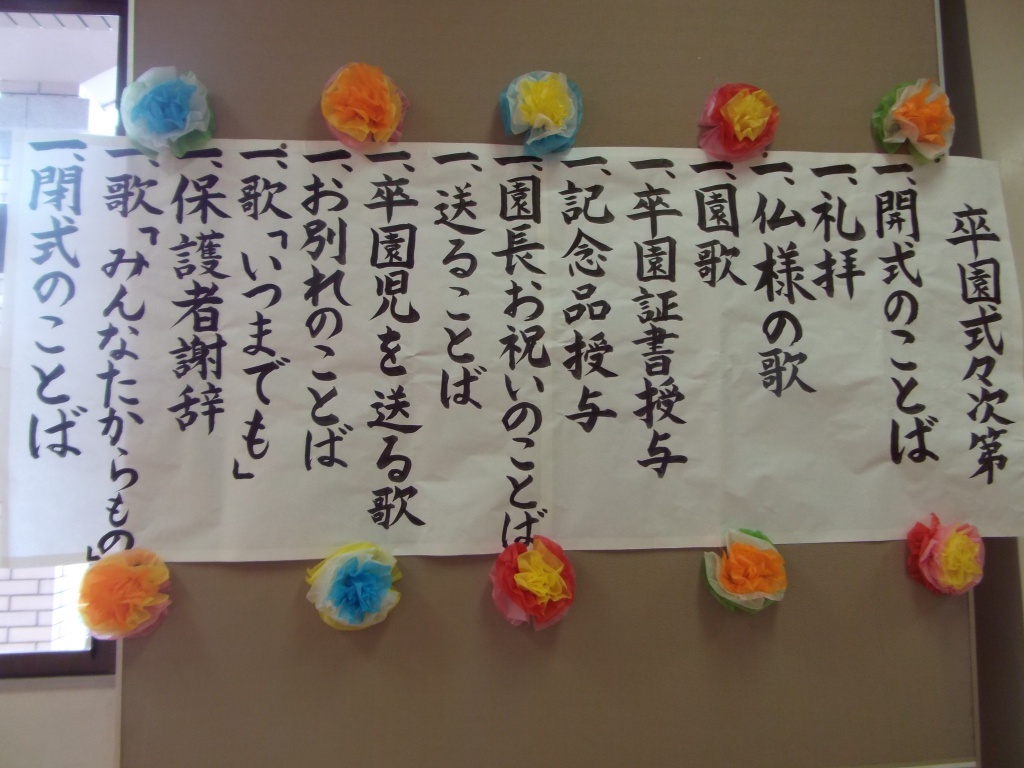 卒園式々次第
一、開式のことば
一、礼拝
一、仏様の歌
一、園歌
一、卒園証書授与
一、記念品授与
一、園長お祝いのことば
一、送ることば
一、卒園児を送る歌
一、お別れのことば
一、歌「いつまでも」
一、保護者謝辞
一、歌「みんなたからもの」
一、閉式のことば